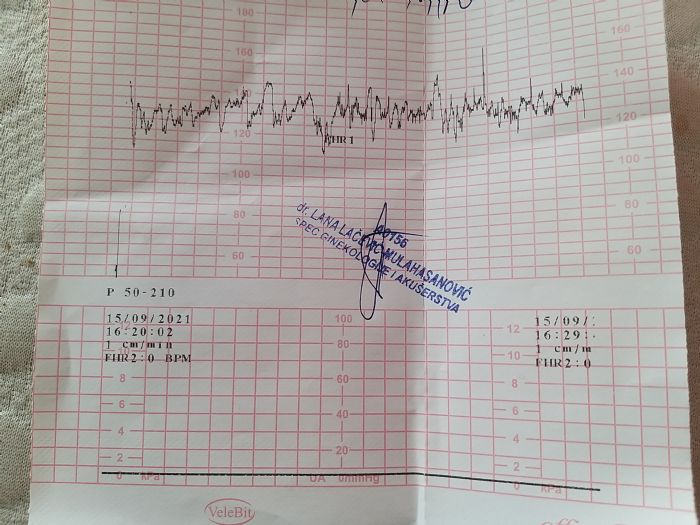 180
160
160
140
140
120
120
FHR 1
100
100
80
80
60
60
00156
dr. LANA LAČEVIĆ-MULAHASANOVIĆ
SPEC. GINEKOLOGIJE I AKUŠERSTVA
P 50-210
15/09/2021
16:20:02
1 cm/min
FHR2:0 BPM
100
12
15/09/
16:29:
1 cm/m
FHR2:0
8
80
10
8
6
60
6
4
40
4
2
20
2
0 kPa
UA 0mmHg
0 kPa
VeleBit